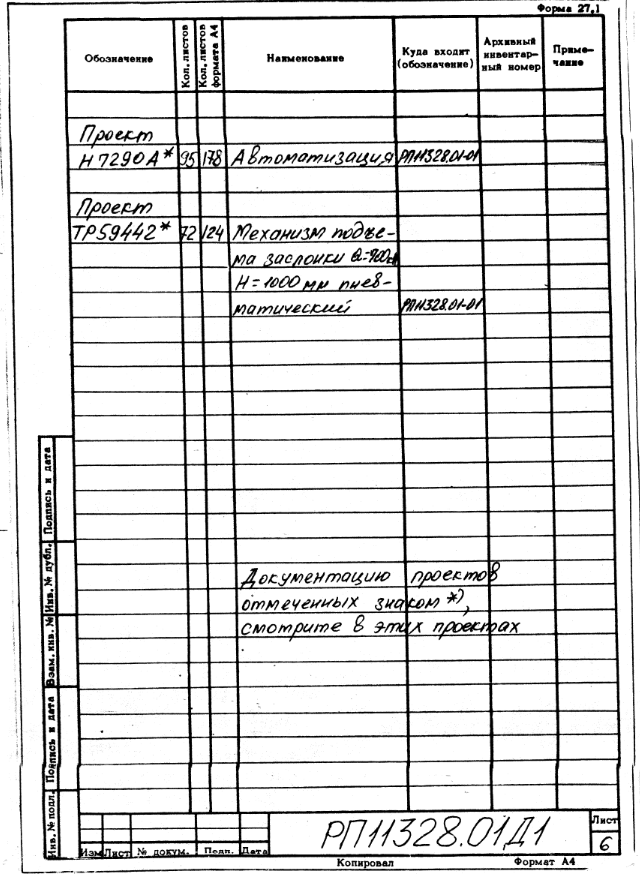 Форма 27.1
Обозначение
Кол. листов
Кол. листов формата А4
Наименование
Куда входит (обозначение)
Архивный инвентарный номер
Примечание
Проект
Н7290А* 95 178 Автоматизация РП11328.01-01
Проект
ТР59442* 72 124 Механизм подъе-
ма заслонки Q=900кг
Н=1000 мм пнев-
матический РП11328.01-01
Документацию проектов
отмеченных знаком *),
смотрите в этих проектах
Инв. № подл. Подпись и дата Взам. инв. № Инв. № дубл. Подпись и дата
РП11328.01Д1
Лист
6
Изм Лист № докум. Подп. Дата
Копировал Формат А4